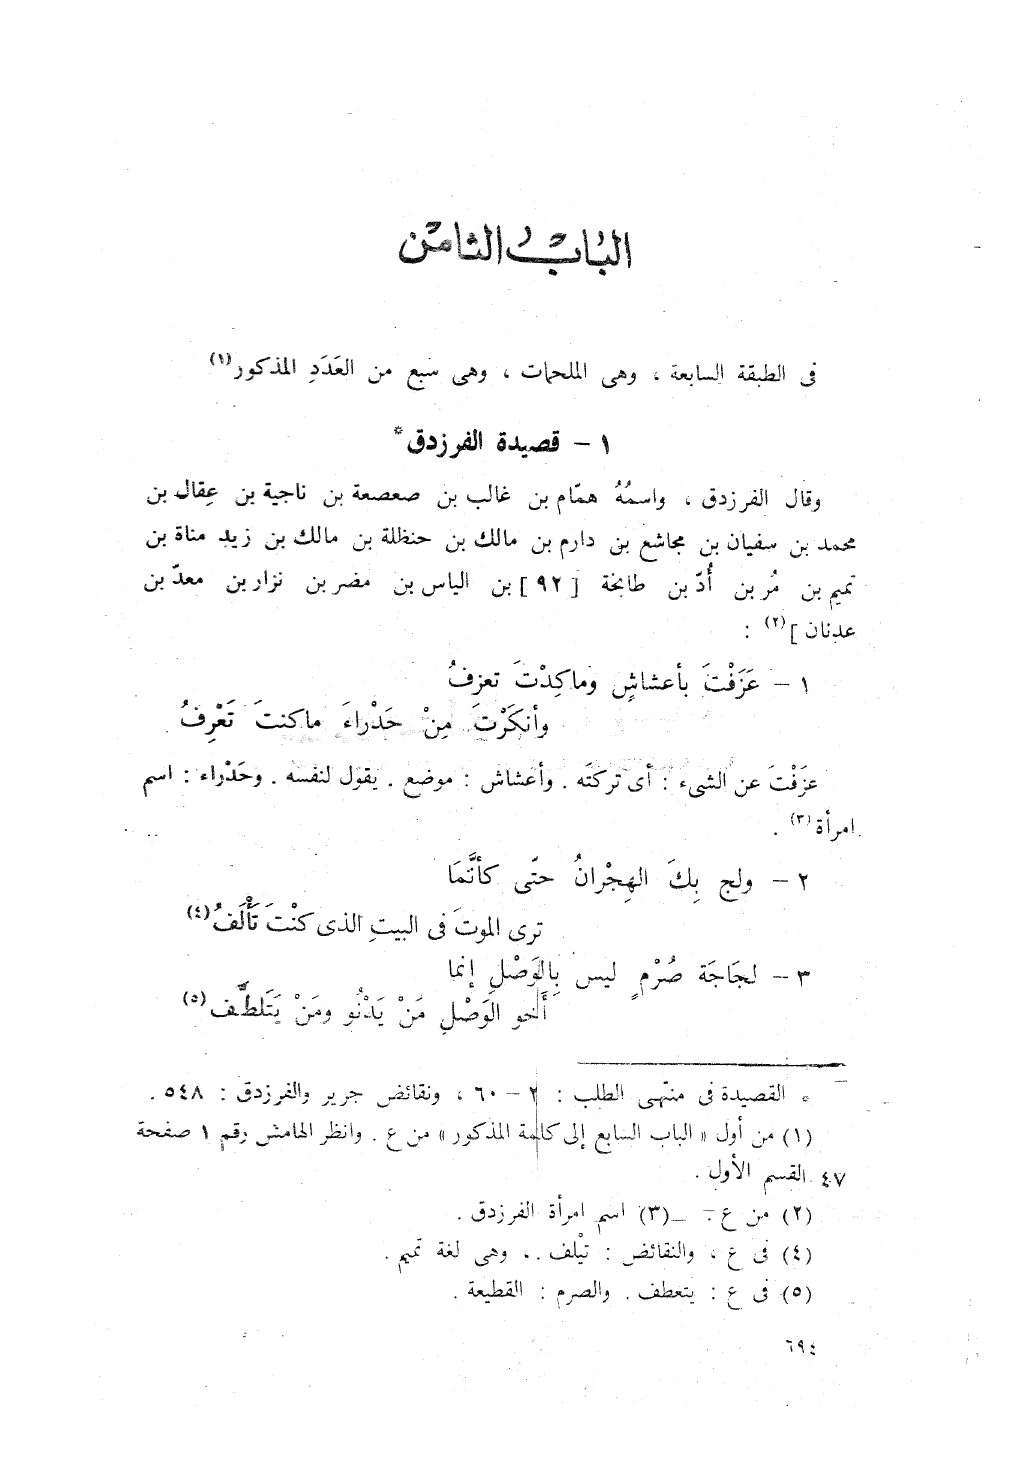 الباب الثامن
فى الطبقة السابعة ، وهى الملحمات ، وهى سبع من العَدَدِ المذكور(١)
١ – قصيدة الفرزدق*
وقال الفرزدق ، واسمُهُ همّام بن غالب بن صعصعة بن ناجية بن عِقال بن
محمد بن سفيان بن مجاشع بن دارم بن مالك بن حنظلة بن مالك بن زيد مناة بن
تميم بن مُر بن أُدّ بن طابخة [ ٩٢ ] بن الياس بن مضر بن نزار بن معدّ بن
عدنان ](٢) :
١ – عَزَفْتَ بأعشاشٍ وماكِدْتَ تعزفُ
وأنكَرْتَ مِنْ حَدْراءَ ماكنتَ تَعْرِفُ
عزَفْتَ عن الشىء : أى تركتَه . وأعشاش : موضع . يقول لنفسه . وحَدْراء : اسم
امرأة(٣) .
٢ – ولج بِكَ الهِجْرانُ حتّى كأنَّمَا
ترى الموتَ فى البيتِ الذى كنْتَ تَأْلَفُ(٤)
٣ – لجاجَة صُرْمٍ ليس بِالوَصْلِ إنما
أخو الوَصْلِ مَنْ يَدْنُو ومَنْ يَتَلطَّف(٥)
* القصيدة فى منتهى الطلب : ٢ – ٦٠ ، ونقائض جرير والفرزدق : ٥٤٨ .
(١) من أول « الباب السابع إلى كلمة المذكور » من ع . وانظر الهامش رقم ١ صفحة
٤٧ القسم الأول .
(٢) من ع . – (٣) اسم امرأة الفرزدق .
(٤) فى ع ، والنقائض : تيْلف . ، وهى لغة تميم .
(٥) فى ع : يتعطف . والصرم : القطيعة .
٦٩٤